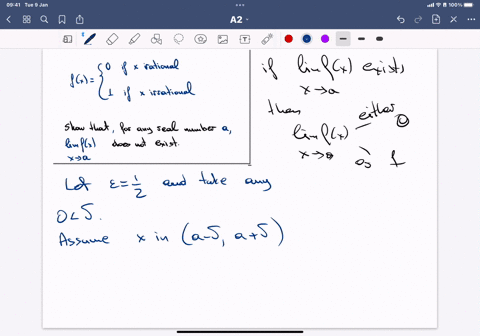 09:41 Tue 9 Jan
100%
A2
f(x)= { 0 if x rational
1 if x irrational
show that, for any real number a,
lim f(x) does not exist.
x→a
if lim f(x) exists
x→a
then
either 0
lim f(x)
x→a
or 1
Let ε=1/2 and take any
0<δ.
Assume x in (a-δ, a+δ)